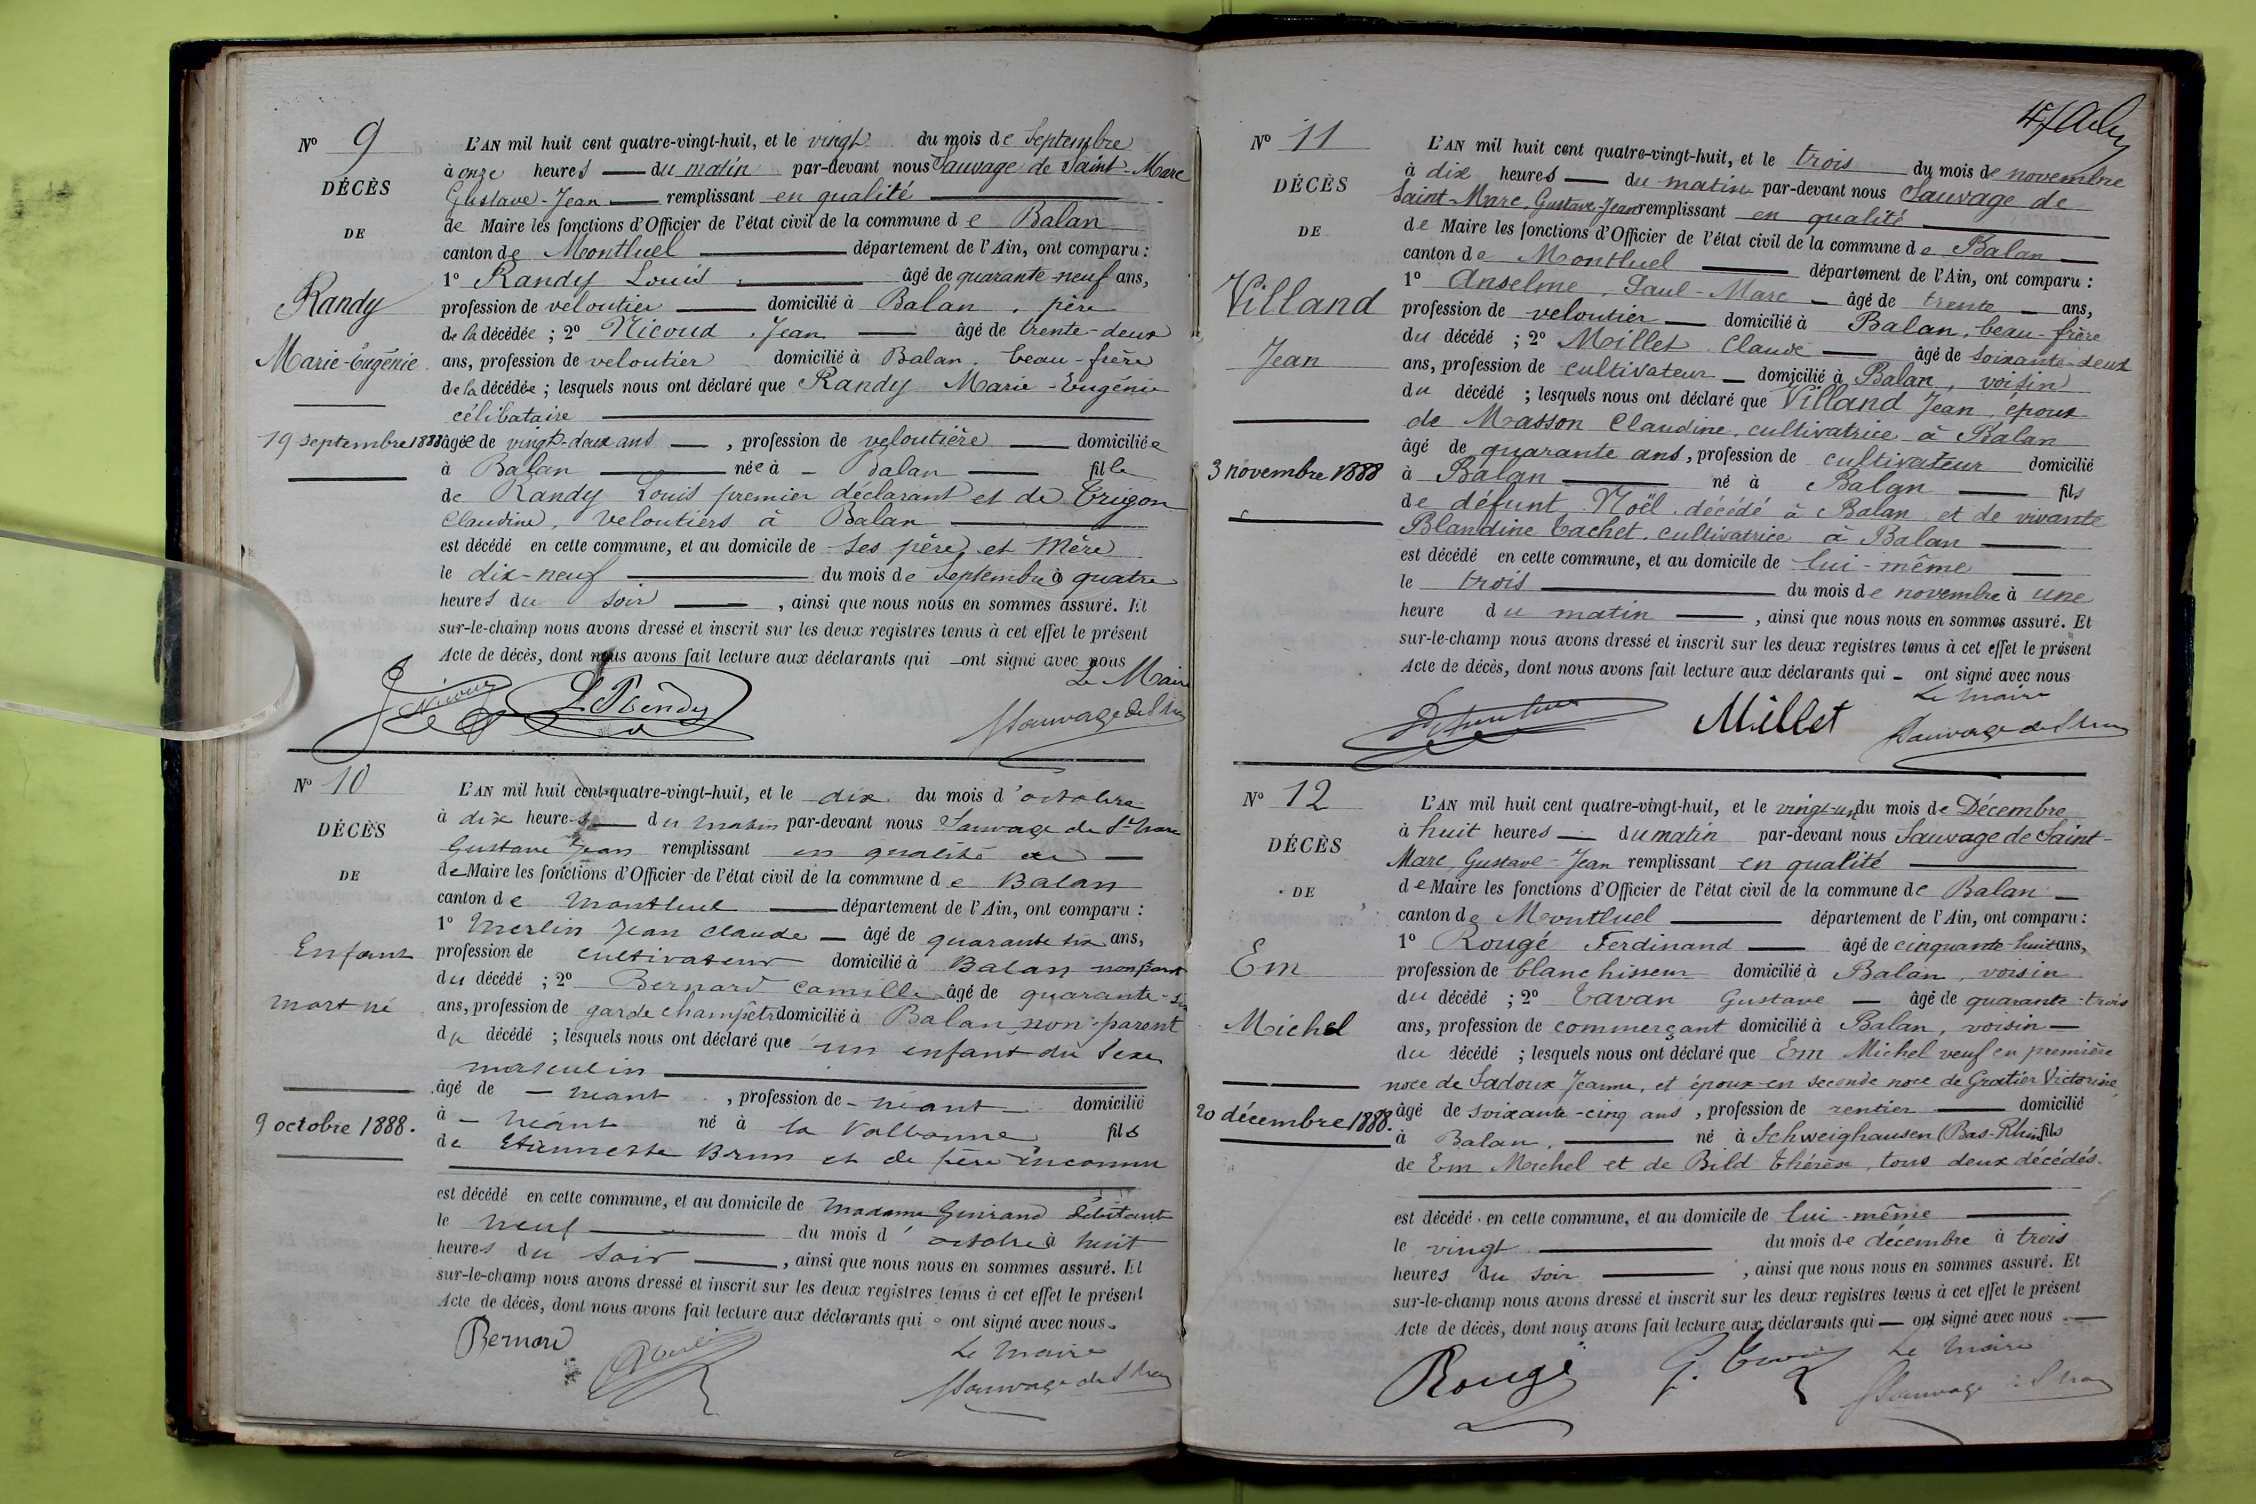 Nº 9
DÉCÈS
DE
Randy
Marie-Eugénie
19 septembre 1888
L'AN mil huit cent quatre-vingt-huit, et le vingt du mois de Septembre
à onze heures du matin par-devant nous Sauvage de Saint-Marc
Gustave-Jean remplissant en qualité
de Maire les fonctions d'Officier de l'état civil de la commune de Balan
canton de Montluel département de l'Ain, ont comparu :
1º Randy Louis âgé de quarante-neuf ans,
profession de veloutier domicilié à Balan, père
de la décédée ; 2º Nicoud, Jean âgé de trente-deux
ans, profession de veloutier domicilié à Balan, beau-frère
de la décédée ; lesquels nous ont déclaré que Randy Marie-Eugénie
célibataire
âgée de vingt-deux ans, profession de veloutière domiciliée
à Balan née à Balan fille
de Randy Louis premier déclarant et de Trigon
Claudine, veloutiers à Balan
est décédé en cette commune, et au domicile de ses père et mère
le dix-neuf du mois de Septembre à quatre
heures du soir, ainsi que nous nous en sommes assuré. Et
sur-le-champ nous avons dressé et inscrit sur les deux registres tenus à cet effet le présent
Acte de décès, dont nous avons fait lecture aux déclarants qui ont signé avec nous
Le Maire
Nicoud L. Rendy Sauvage de St Marc
Nº 10
DÉCÈS
DE
Enfant
mort né
9 octobre 1888.
L'AN mil huit cent quatre-vingt-huit, et le dix du mois d'octobre
à dix heures du matin par-devant nous Sauvage de St Marc
Gustave Jean remplissant en qualité de
de Maire les fonctions d'Officier de l'état civil de la commune de Balan
canton de Montluel département de l'Ain, ont comparu :
1º Merlin Jean Claude âgé de quarante six ans,
profession de cultivateur domicilié à Balan non parent
du décédé ; 2º Bernard Camille âgé de quarante-six
ans, profession de garde champêtre domicilié à Balan, non parent
du décédé ; lesquels nous ont déclaré que un enfant du sexe
masculin
âgé de néant, profession de néant domicilié
à néant né à la Valbonne fils
de Etiennette Brun et de père inconnu
est décédé en cette commune, et au domicile de Madame Guirand débitante
le neuf du mois d'octobre à huit
heures du soir, ainsi que nous nous en sommes assuré. Et
sur-le-champ nous avons dressé et inscrit sur les deux registres tenus à cet effet le présent
Acte de décès, dont nous avons fait lecture aux déclarants qui ont signé avec nous.
Le Maire
Bernard Merlin Sauvage de St Marc
Nº 11
DÉCÈS
DE
Villand
Jean
3 novembre 1888
L'AN mil huit cent quatre-vingt-huit, et le trois du mois de novembre
à dix heures du matin par-devant nous Sauvage de
Saint-Marc, Gustave-Jean remplissant en qualité
de Maire les fonctions d'Officier de l'état civil de la commune de Balan
canton de Montluel département de l'Ain, ont comparu :
1º Anselme, Paul-Marc âgé de trente ans,
profession de veloutier domicilié à Balan, beau-frère
du décédé ; 2º Millet Claude âgé de soixante-deux
ans, profession de cultivateur domicilié à Balan, voisin
du décédé ; lesquels nous ont déclaré que Villand Jean, époux
de Masson Claudine, cultivatrice à Balan
âgé de quarante ans, profession de cultivateur domicilié
à Balan né à Balan fils
de défunt Noël, décédé à Balan, et de vivante
Blandine Cachet, cultivatrice à Balan
est décédé en cette commune, et au domicile de lui-même
le trois du mois de novembre à une
heure du matin, ainsi que nous nous en sommes assuré. Et
sur-le-champ nous avons dressé et inscrit sur les deux registres tenus à cet effet le présent
Acte de décès, dont nous avons fait lecture aux déclarants qui ont signé avec nous
Le Maire
Millet Sauvage de St Marc
Nº 12
DÉCÈS
DE
Em
Michel
20 décembre 1888.
L'AN mil huit cent quatre-vingt-huit, et le vingt-un du mois de Décembre
à huit heures du matin par-devant nous Sauvage de Saint-
Marc, Gustave-Jean remplissant en qualité
de Maire les fonctions d'Officier de l'état civil de la commune de Balan
canton de Montluel département de l'Ain, ont comparu :
1º Rougé Ferdinand âgé de cinquante-huit ans,
profession de blanchisseur domicilié à Balan, voisin
du décédé ; 2º Tavan Gustave âgé de quarante-trois
ans, profession de commerçant domicilié à Balan, voisin
du décédé ; lesquels nous ont déclaré que Em Michel veuf en première
noce de Sadoux Jeanne, et époux en seconde noce de Gratier Victorine,
âgé de soixante-cinq ans, profession de rentier domicilié
à Balan, né à Schweighausen (Bas-Rhin) fils
de Em Michel et de Bild Thérèse, tous deux décédés.
est décédé en cette commune, et au domicile de lui-même
le vingt du mois de décembre à trois
heures du soir, ainsi que nous nous en sommes assuré. Et
sur-le-champ nous avons dressé et inscrit sur les deux registres tenus à cet effet le présent
Acte de décès, dont nous avons fait lecture aux déclarants qui ont signé avec nous.
Le Maire
Rougé G. Tavan Sauvage de St Marc